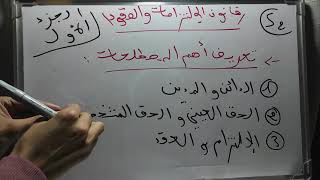 قانون الإلتزامات والعقود
S2
الجزء الأول
تعريف أهم المصطلحات :
① الدائن و المدين
② الحق العيني و الحق
③ الإلتزام و العقد